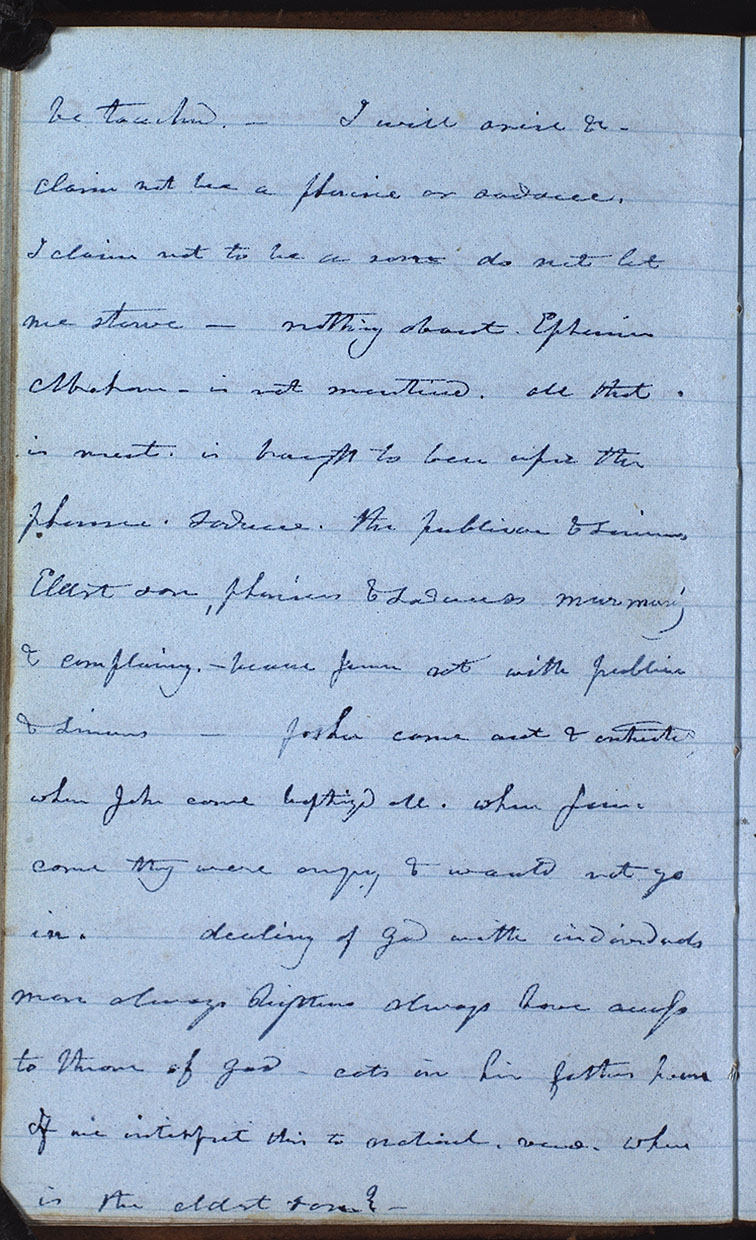 be touched. — I will arise & -
claim not be a pharisee or saducee.
I claim not to be a son do not let
me starve — nothing about. Ephraim
Abraham - is not mentioned. all that .
is meant. is brought to bear upon the
pharisee. Saducee. the publican & sinners
Eldest son, pharisees & Saducees murmuring
& complaing. - because Jesus sat with publican
& sinners — Father came out & entreated
when John come baptized all. when Jesus.
come they were angry & would not go
in. dealing of God with individuals
men always righteous always have access
to throne of god - eats in his fathers house
If we interpret this to national. view. where
is the eldest son? —